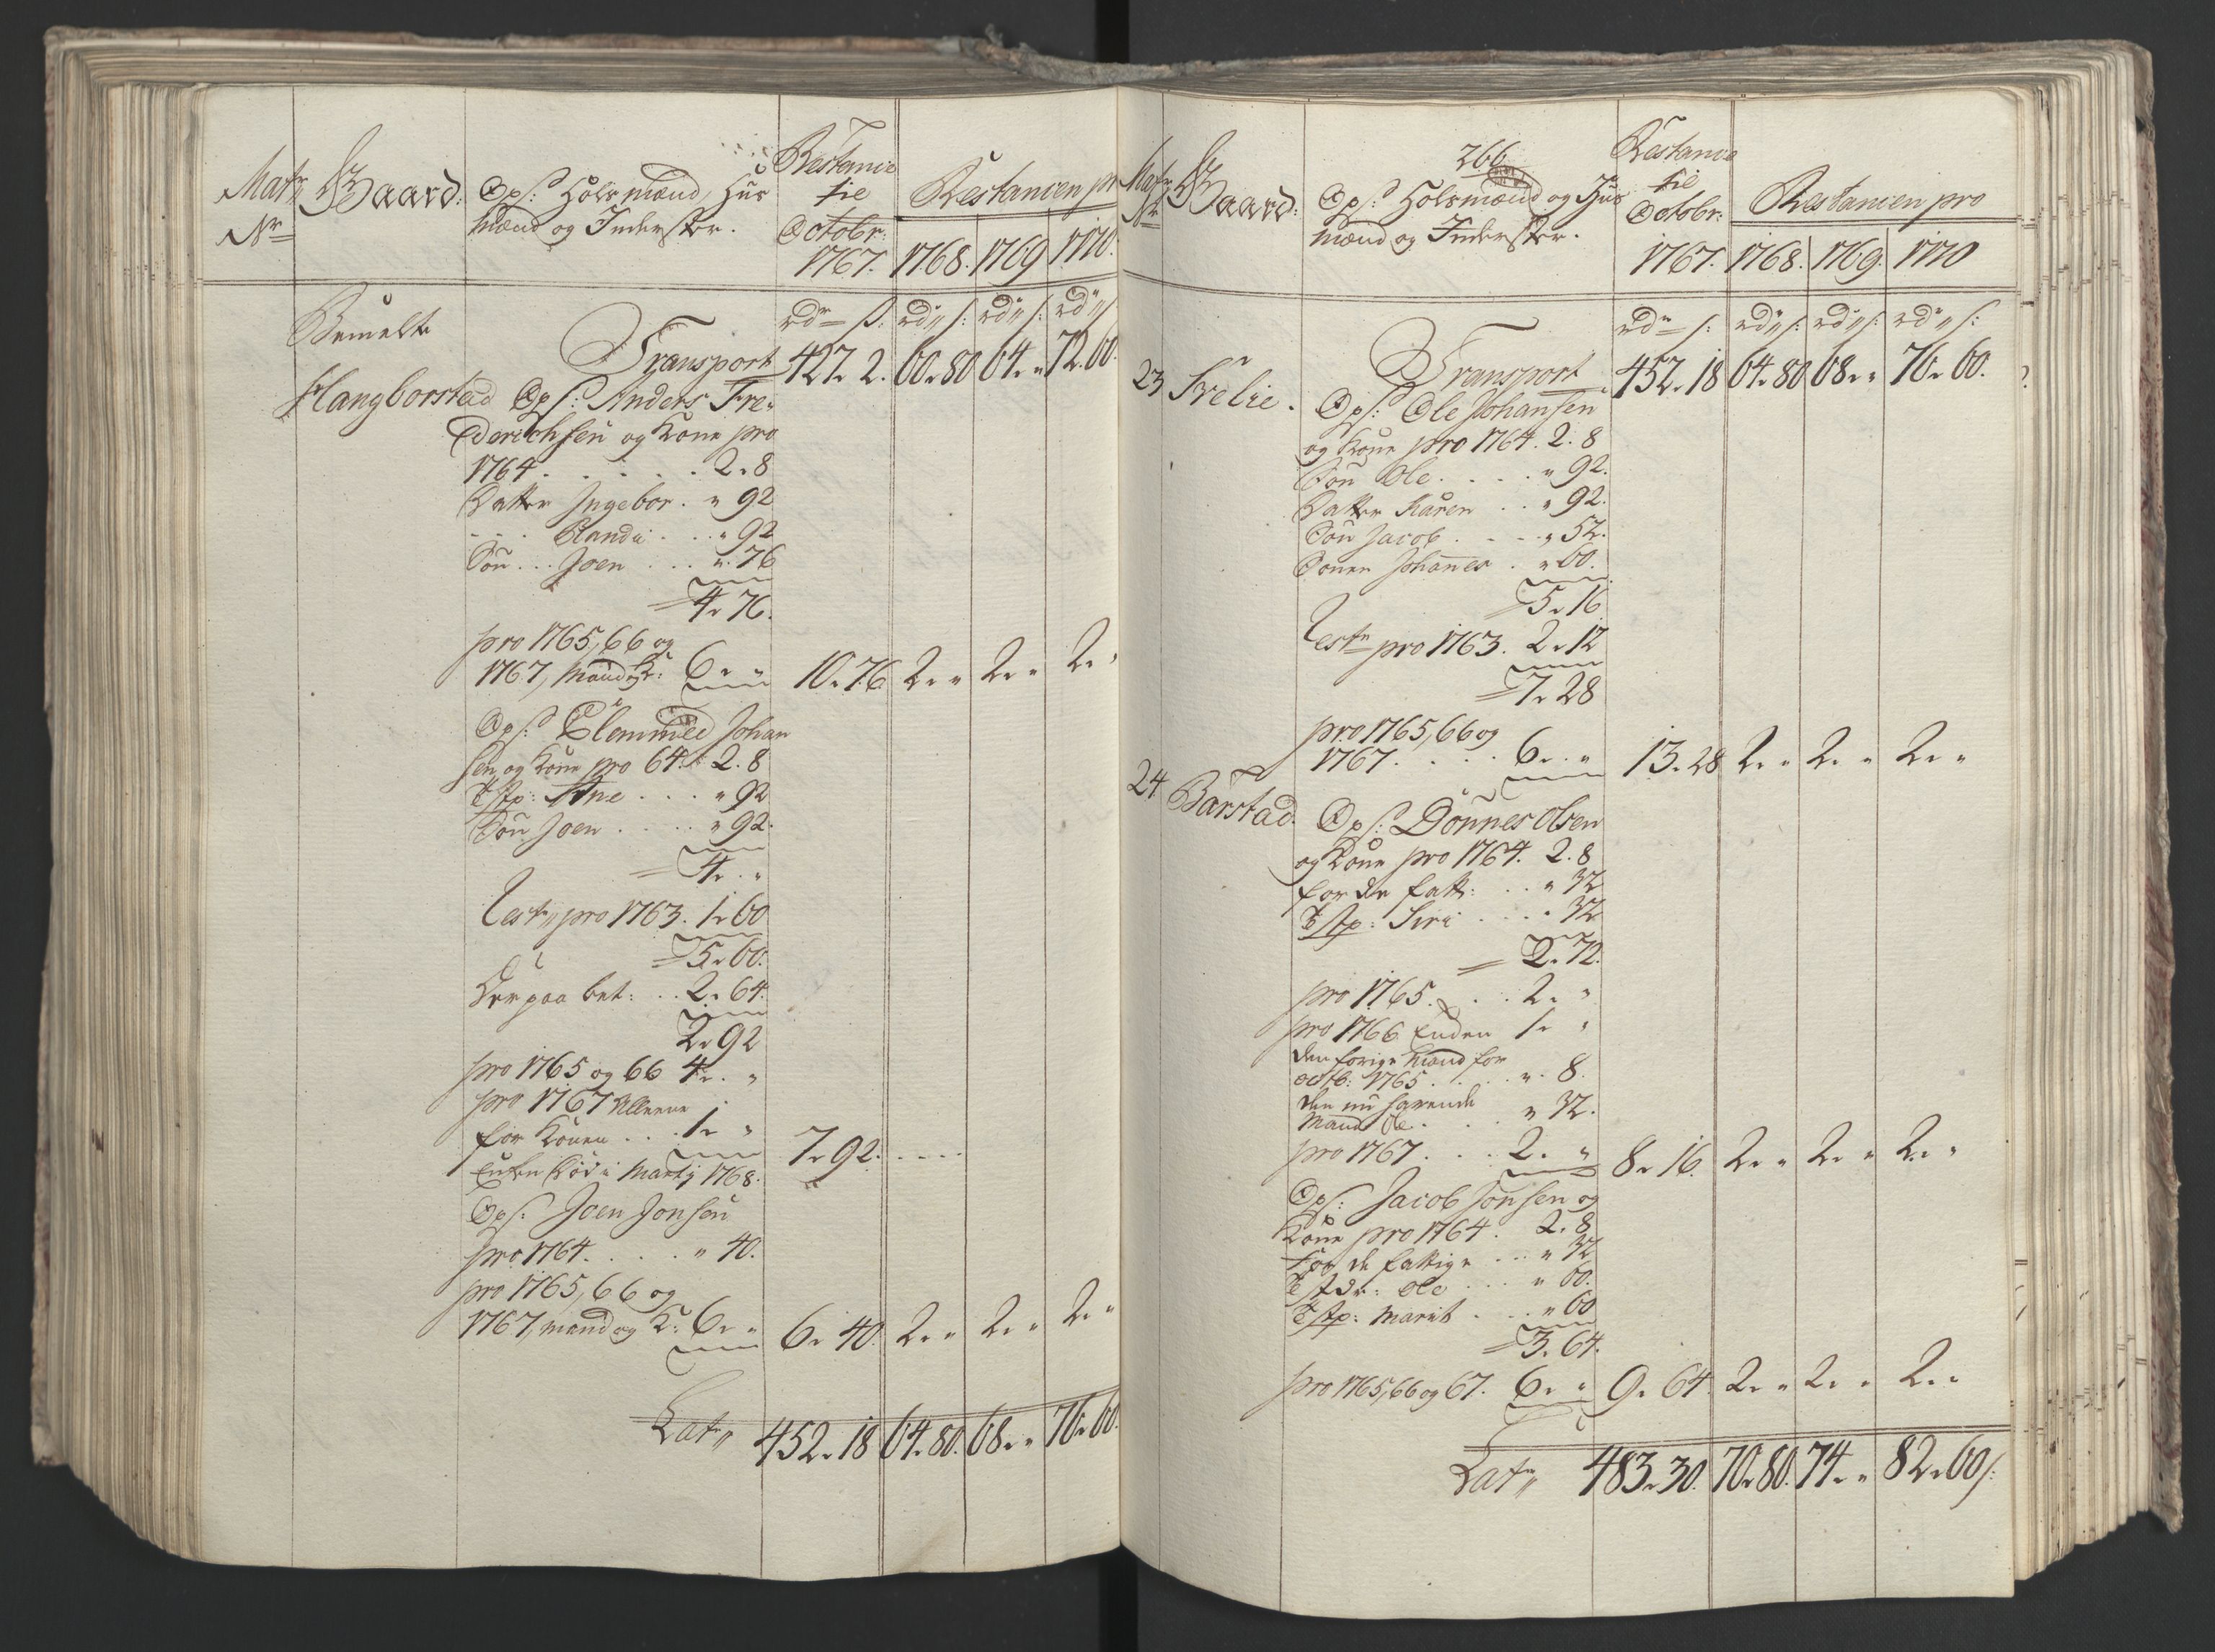 Matr Nr
Gaard:
Ops: Holsmænd, Huus
mænd og Inderster.
Restance
til
Octobr:
1767.
Restancen pr
1768. 1769 1770.
rdr ß: rd ß: rd ß: rd ß
Bemelte
Transport 427. 2. 60. 80 64. " 72. 60.
Hangborstad Ops: Anders Fre-
derichsen og Kone pro
1764 . . . . . 2. 8
Datter Ingebor. " 92
. . . Randi . . . " 92
Søn . . . Joen . . . " 76
4. 76.
pro 1765, 66 og
1767, Mand og K: 6. " 10. 76 2. " 2. " 2. "
Ops: Clemmed Johan
sen og Kone pro 64. 2. 8
T stp: Ane . . . " 92
Søn Joen . . . . " 92.
4. "
Rest pro 1763. 1. 60
5. 60.
Derpaa bet: . . 2. 64.
2. 92
pro 1765 og 66 4. "
pro 1767 alleene
for Konen . . . 1. " 7. 92. . . . .
Enken død i Martj 1768.
Ops: Joen Jonsen
pro 1764. . . . . " 40.
pro 1765, 66 og
1767, mand og K: 6. " 6. 40. 2. " 2. " 2. "
Lat 452. 18 64. 80. 68. " 76. 60.
266
Matr Nr
Gaard:
Ops: Holsmænd og Huus
mænd og Inderster.
Restance
til
Octobr:
1767.
Restancen pro
1768. 1769. 1770
rdr ß: rd ß: rd ß: rd ß:
Transport 452. 18 64. 80 68. " 76. 60.
23 Svelie. Ops: Ole Johansen
og Kone pro 1764. 2. 8
Søn Ole. . . . " 92.
Datter Karen . . " 92.
Søn Jacob . . . " 52.
Sønen Johannes . " 60.
5. 16
Rest pro 1763. 2. 12
7. 28
pro 1765, 66 og
1767. . . . . 6. " 13. 28 2. " 2. " 2. "
24 Barstad. Ops: Dønnes Olsen
og Kone pro 1764. 2. 8
for de fatt: . . " 32
T stp: Siri . . . . 32
2. 72.
pro 1765. . . . 2. "
pro 1766 Enken 1. "
den forige Mand for
octb: 1765 . . . . " 8.
den nu havende
Mand Ole . . . " 32.
pro 1767 . . . 2. " 8. 16. 2. " 2. " 2. "
Ops: Jacob Jonsen og
Kone pro 1764. 2. 8
For de fattige . . . " 32
T stdr: Ole . . . " 60.
T stp: Marit . . . " 60
3. 64.
pro 1765, 66 og 67. 6. " 9. 64. 2. " 2. " 2. "
Lat 483. 30. 70. 80. 74. " 82. 60 ß: